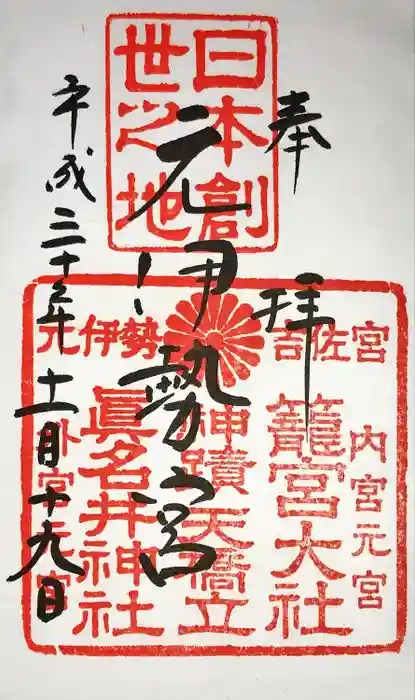 奉拝
日本創
世之地
元伊勢の宮
元伊勢 吉佐宮
内宮元宮
籠宮大社
神蹟天橋立
眞名井神社
外宮元宮
平成三十年十一月十九日